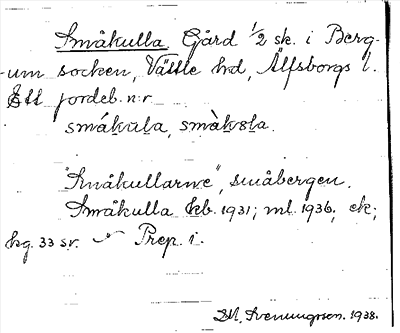 Småkulla Gård 1/2 sk. i Berg-
um socken, Vättle hd, Älfsborgs l.
Ett jordeb. n:r
småkula, småkəla.
"Småkullarne", småbergen.
Småkulla kb. 1931; ml. 1936, ek;
hg. 33 sv. Prep. i.
1938.